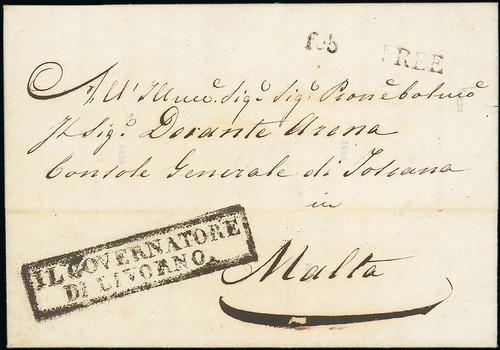 FREE
All' Illmo. Sigr. Sigr. Prone Colmo
Il Sigr. Dorante Arena
Console Generale di Toscana
in
Malta
IL GOVERNATORE
DI LIVORNO.